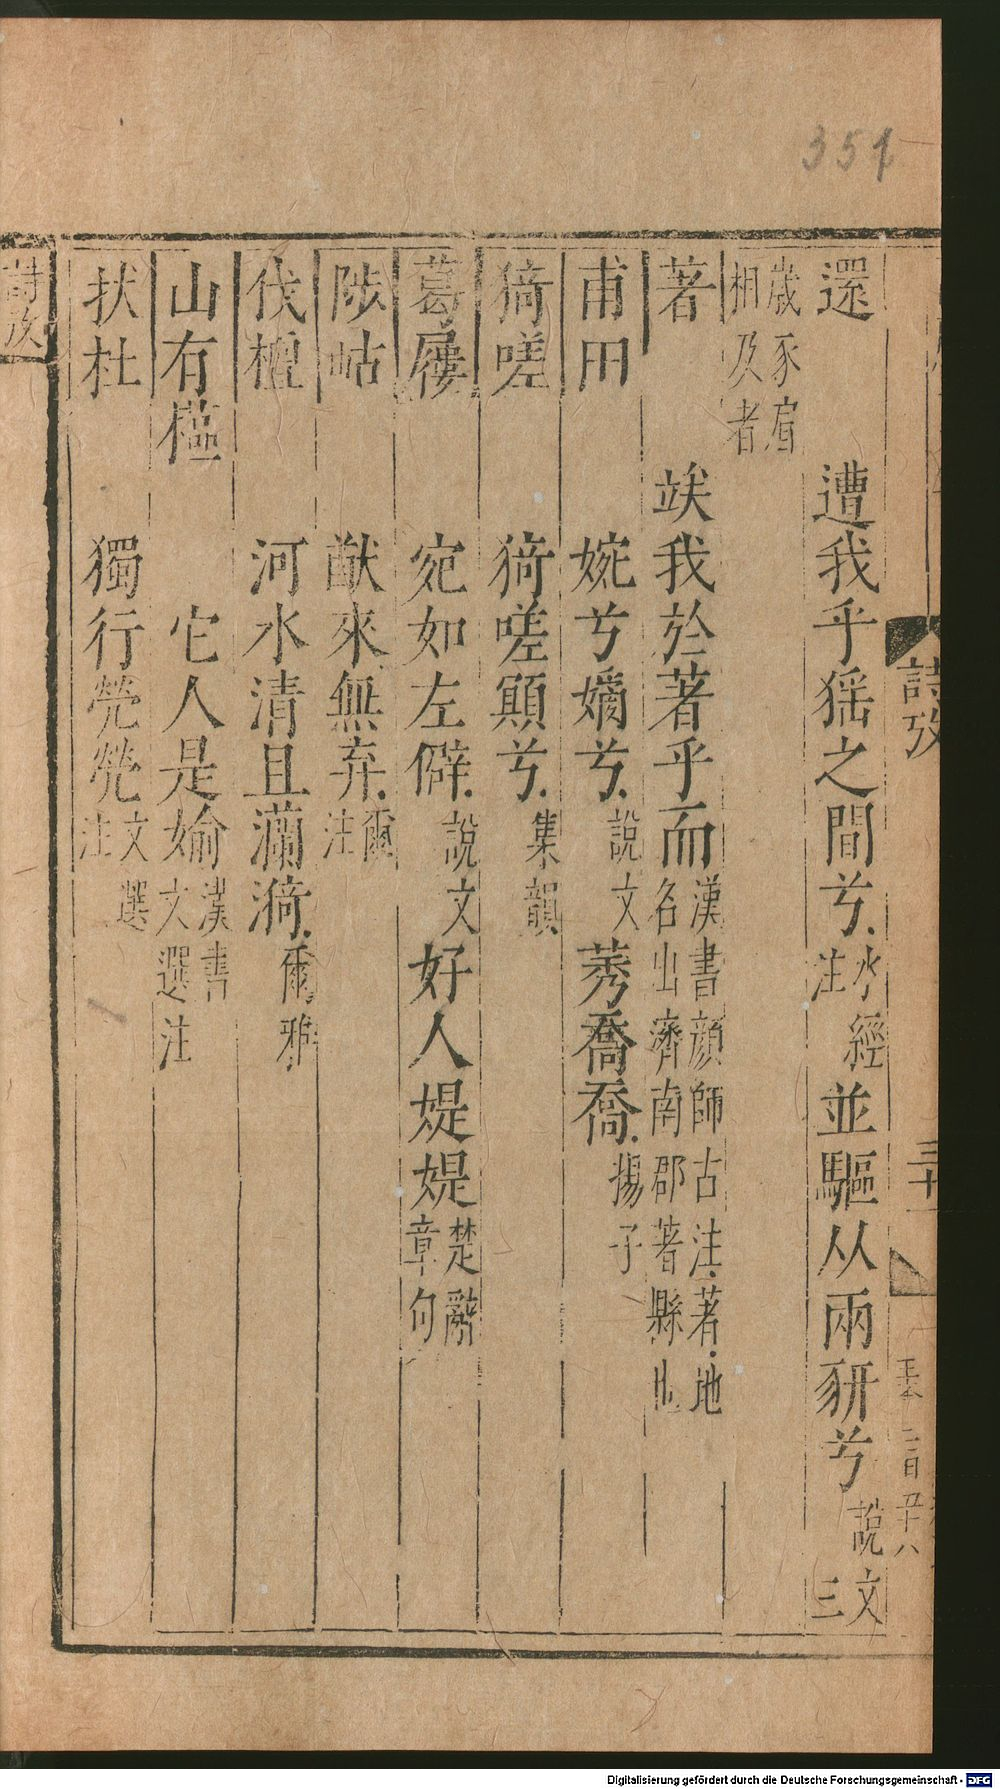 351
詩攷
三十一
還 遭我乎猺之間兮水經注 並驅从兩豜兮說文三
歲豕肩相及者
著 竢我於著乎而漢書顏師古注著地名山濟南郡著縣也
甫田 婉兮嫡兮說文 莠喬喬揚子
猗嗟 猗嗟顯兮集韻
葛屨 宛如左僻說文 好人媞媞楚辭章句
陟岵 猷來無弃爾注
伐檀 河水清且灡漪爾雅
山有樞 它人是媮漢書文選注
杕杜 獨行煢煢文選注
詩攷
Digitalisierung gefördert durch die Deutsche Forschungsgemeinschaft - DFG